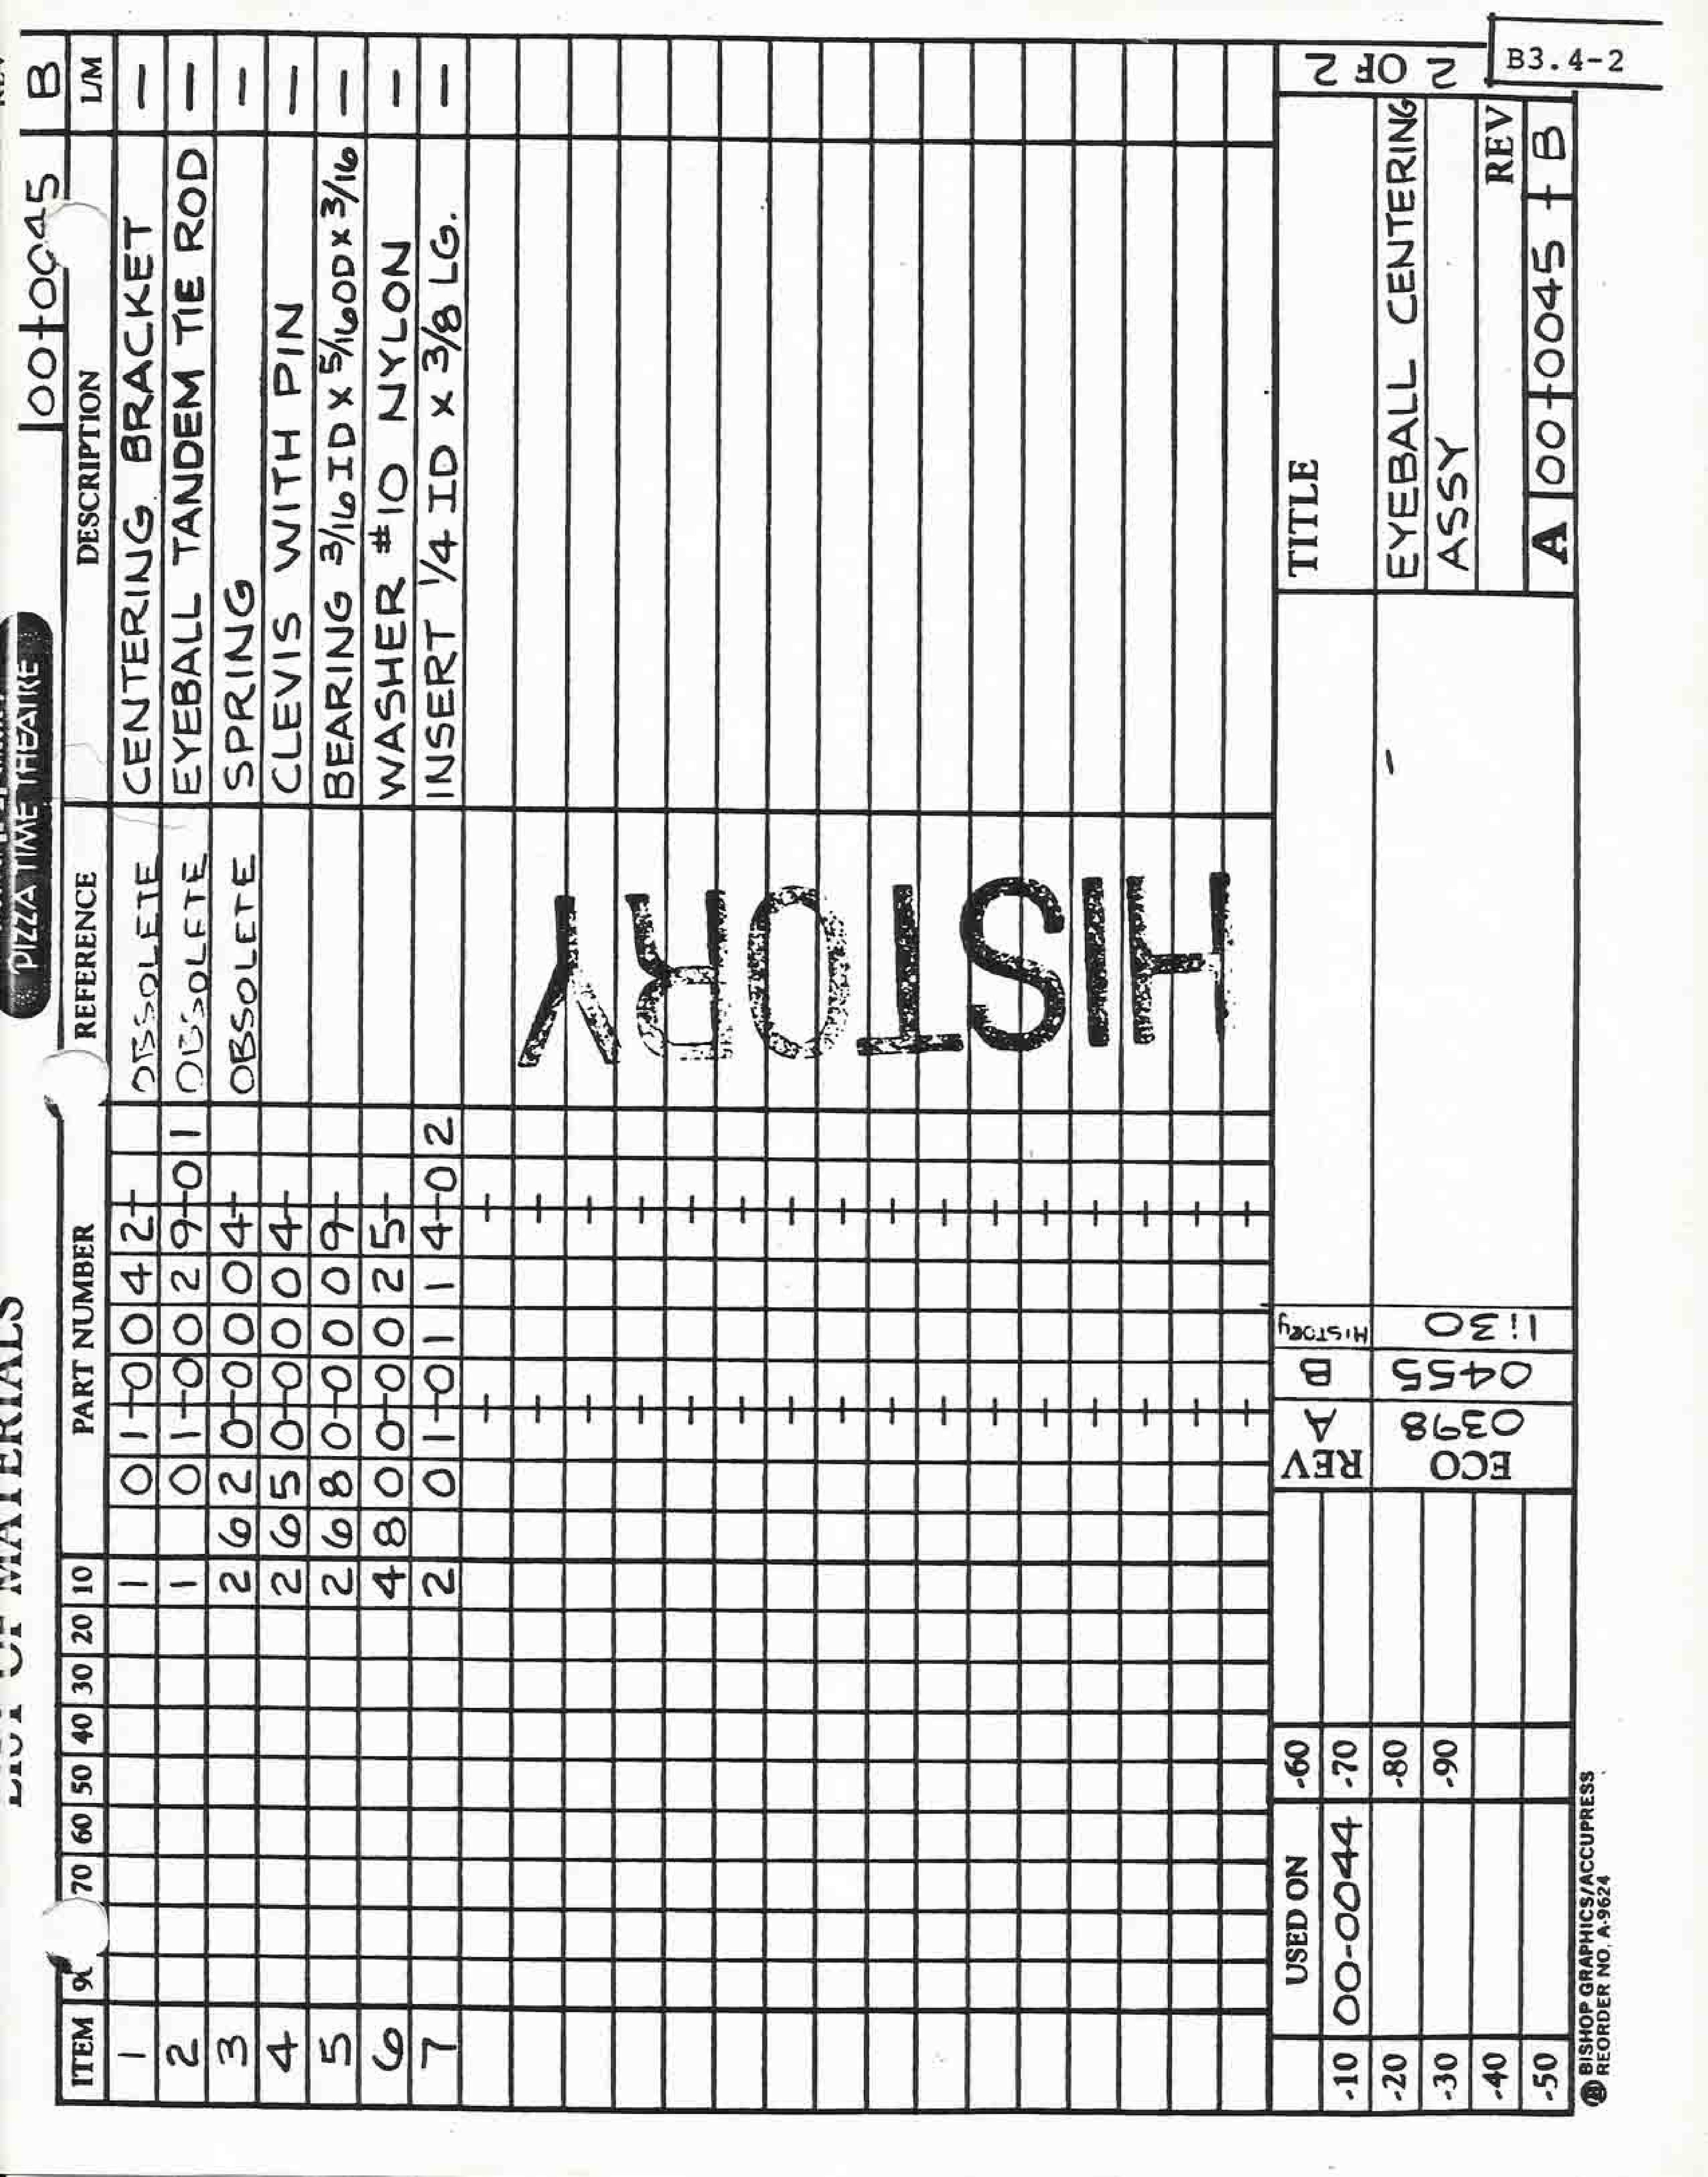 LIST OF MATERIALS
PIZZA TIME THEATRE
REV
00-0045 B
ITEM 70 60 50 40 30 20 10 PART NUMBER REFERENCE DESCRIPTION L/M
1 1 01-0042- OBSOLETE CENTERING BRACKET —
2 1 01-0029-01 OBSOLETE EYEBALL TANDEM TIE ROD —
3 2 620-0004- OBSOLETE SPRING —
4 2 650-0004- CLEVIS WITH PIN —
5 2 680-0009- BEARING 3/16 ID x 5/16 OD x 3/16 —
6 4 800-0025- WASHER #10 NYLON —
7 2 01-0114-02 INSERT 1/4 ID x 3/8 LG. —
HISTORY
USED ON
-10 00-0044
-20
-30
-40
-50
-60
-70
-80
-90
REV ECO
A 0398
B 0455
HISTORY 1:30
TITLE
EYEBALL CENTERING
ASSY
REV
A 00-0045 - B
2 OF 2
B3.4-2
BISHOP GRAPHICS/ACCUPRESS
REORDER NO. A-9624